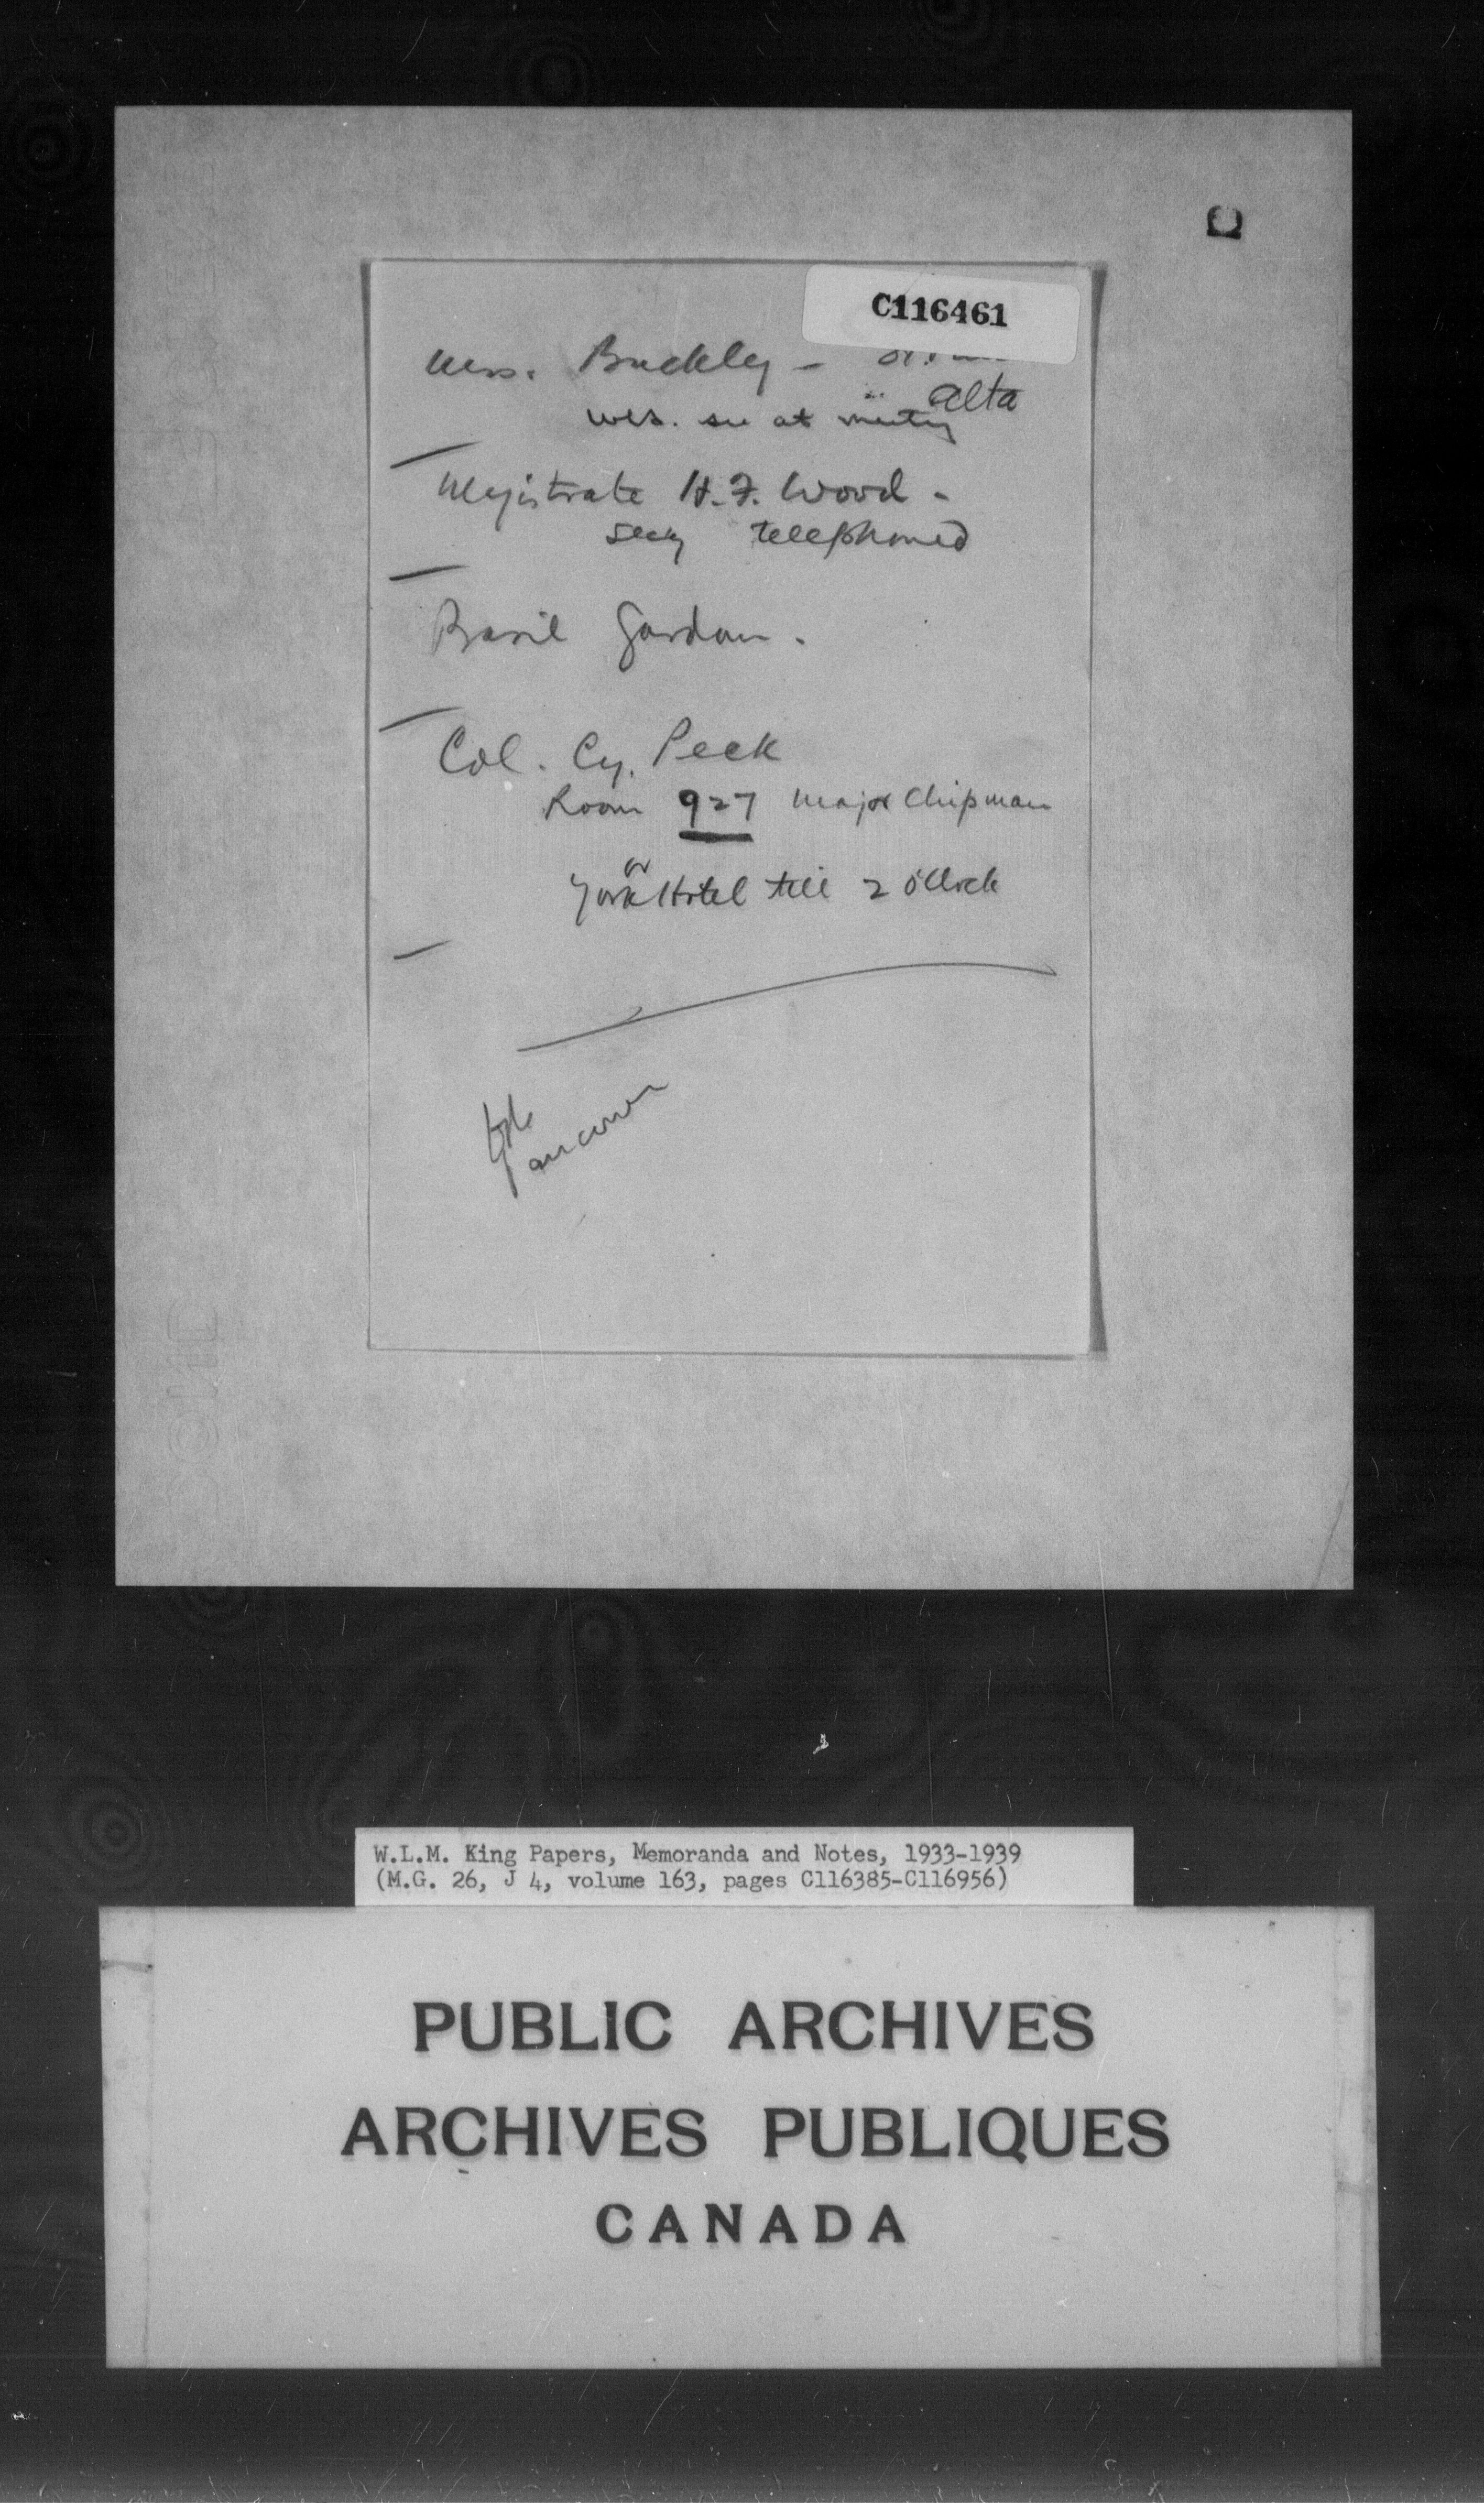 C116461
Mrs. Buckley -
Alta
will see at meeting
Magistrate H. F. Wood -
Secy telephoned
Basil Gordon.
Col. Cy. Peck
Room 927 Major Chipman
or
York Hotel till 2 o'clock
Vancouver
W.L.M. King Papers, Memoranda and Notes, 1933-1939
(M.G. 26, J 4, volume 163, pages C116385-C116956)
PUBLIC ARCHIVES
ARCHIVES PUBLIQUES
CANADA